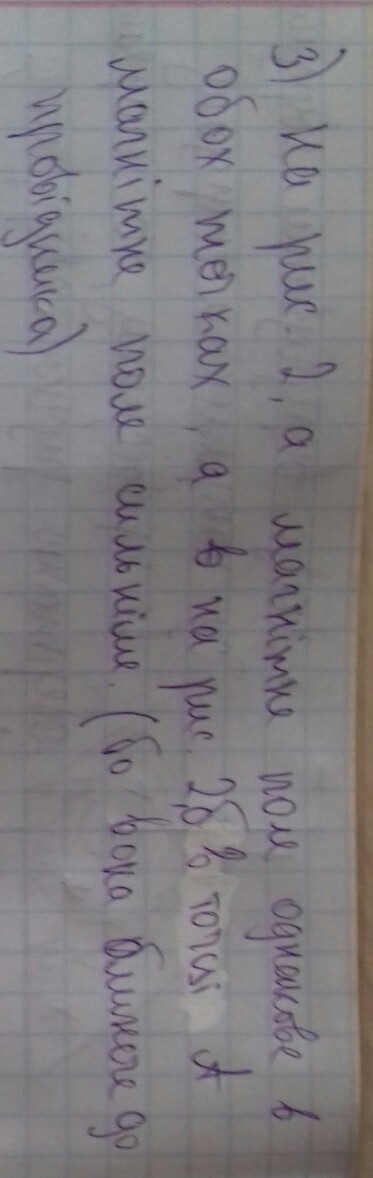 3) На рис. 2, а магнітне поле однакове в
обох точках, а в на рис. 2,б в точці А
магнітне поле сильніше. (бо вона ближче до
провідника)